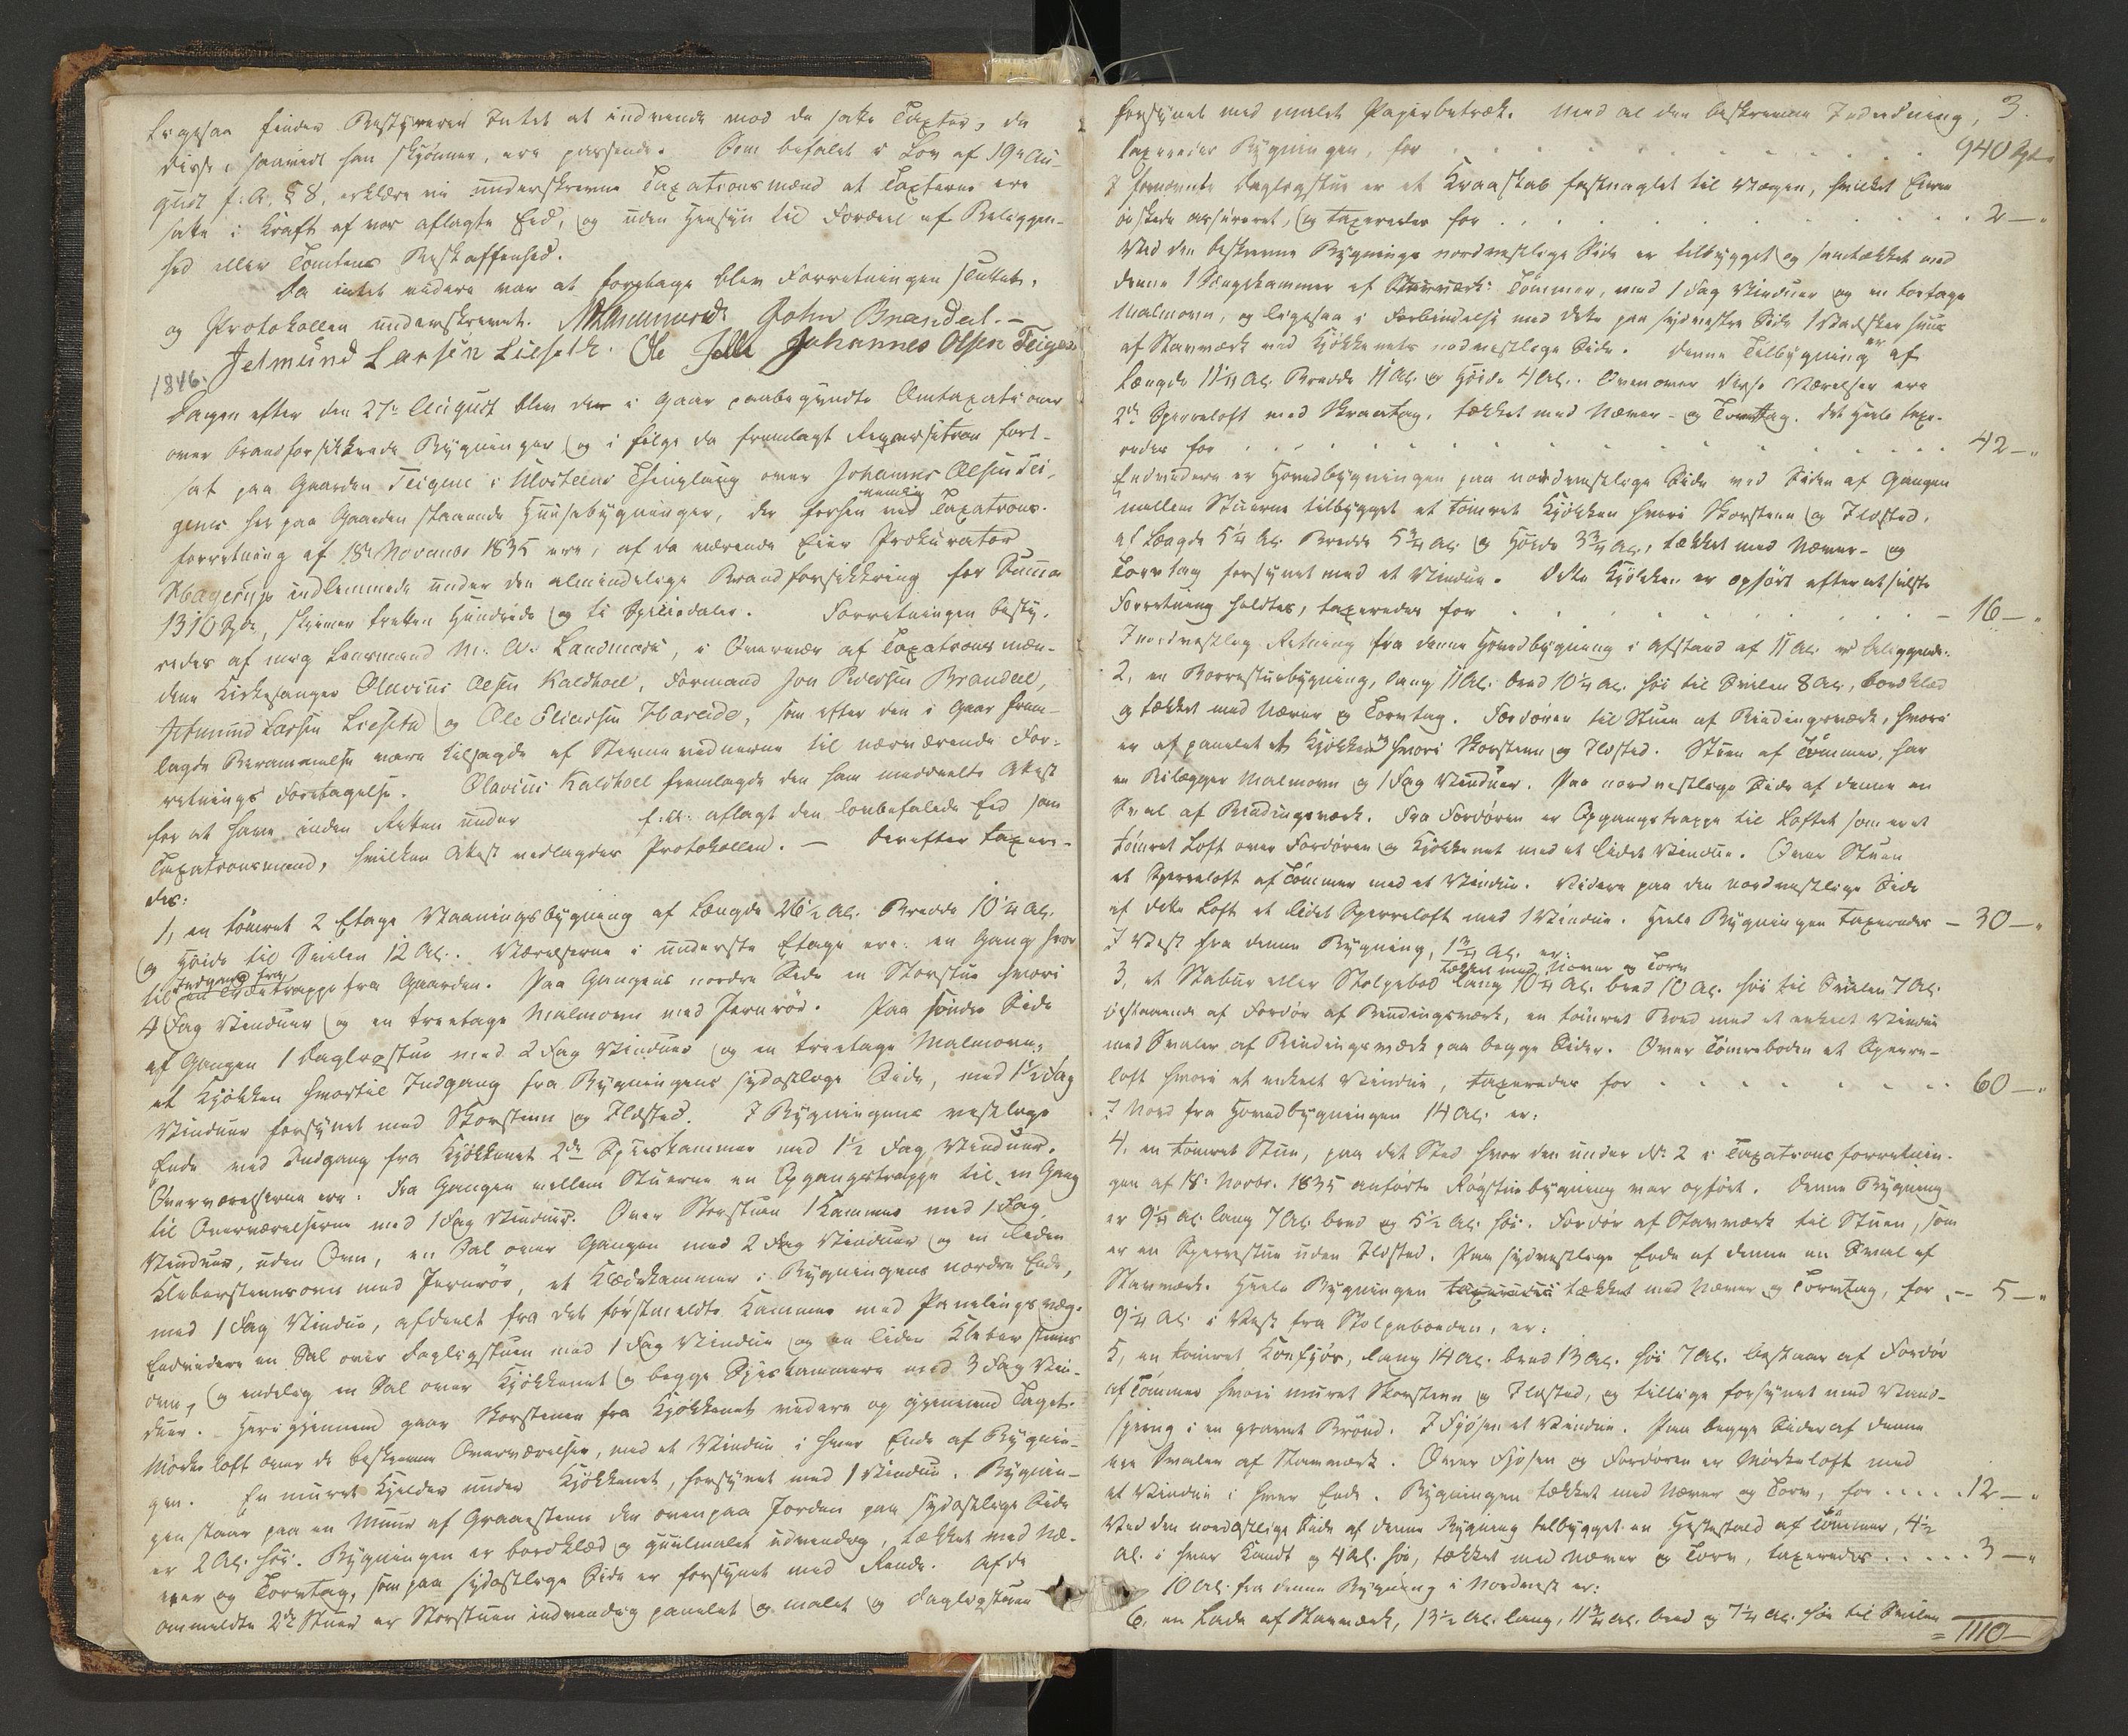 ligesaa finder Bestyreren Intet at indvende mod de satte Taxter, da
disse, saavidt han skjønner, ere passende. Som befalet i Lov af 19de Au-
gust f: A. § 8, erklære vi underskrevne Taxationsmænd at Taxterne ere
satte i Kraft af vor aflagte Eed, og uden Hensyn til Fordeel af Beliggen-
hed eller Tomtens Beskaffenhed.
Da intet videre var at foretage blev Forretningen sluttet,
og Protokollen underskrevet. John Brandal.-
Jetmund Larsen Lieseth. Ole Johannes Olsen Teigen
1846.
Dagen efter den 27de August blev den i Gaar paabegyndte Omtaxations
over brandforsikkrede Bygninger og i følge da fremlagt Reqvisition fort-
sat paa Gaarden Teigene i Ulvsteens Thinglaug over Johannes Olsen Tei-
genes her paa Gaarden staaende Huusebygninger, der forhen nemlig ved Taxations-
forretning af 18de November 1835 ere, af da værende Eier Prokurator
Hagerup indlemmede under den almindelige Brandforsikkring for Summa
1310 Spd, skriver tretten Hundrede og ti Speciedaler. Forretningen besty-
redes af mig Lensmand M: A. Landmark, i Overvær af Taxations mæn-
dene Kirkesanger Olavius Olsen Kaldhoel, Formand Jon Pedersen Brandal,
Jetmund Larsen Lieseth og Ole Eliassen Hareide, som efter den i Gaar frem-
lagde Berammelse vare tilsagde af Stevnevidnerne til nærværende For-
retnings Foretagelse. Olavius Kaldhoel fremlagde den ham meddeelte Attest
for at have inden Retten under f: A: aflagt den lovbefalede Eed som
Taxationsmand, hvilken Attest vedlagdes Protokollen. — Derefter taxere-
des:
1, en tømret 2 Etage Vaaningsbygning af Længde 26½ Al. Bredde 10¼ Al.
og Høide til Svilen 12 Al.. Værelserne i underste Etage ere: en Gang hvor
til Indgang fra en Trætrappe fra Gaarden. Paa Gangens nordre Side en Storstue hvori
4 Fag Vinduer og en treetage Malmovn med Jernrør. Paa søndre Side
af Gangen 1 Dagligstue med 2 Fag Vinduer og en treetage Malmovn,
et Kjøkken hvortil Indgang fra Bygningens sydostlige Side, med 1½ Fag
Vinduer forsynet med Skorsteen og Ildsted. I Bygningens vestlige
Ende med Indgang fra Kjøkkenet 2de Spiiskammer med 1½ Fag Vinduer.
Overværelserne ere: Fra Gangen mellem Stuerne en Opgangstrappe til en Gang
til Overværelserne med 1 Fag Vinduer. Over Storstuen 1 Kammer med 1 Fag
Vinduer, uden Ovn, en Sal over Gangen med 2 Fag Vinduer og en liden
Klebersteensovn med Jernrør, et Klædekammer i Bygningens nordre Ende,
med 1 Fag Vindue, afdeelt fra det førstmeldte Kammer med Panelingsvæg.
Endvidere en Sal over Dagligstuen med 1 Fag Vindue og en liden Kleber steens
ovn, og endelig en Sal over Kjøkkenet og begge Spiiskammere med 3 Fag Vin-
duer. Heri gjennem gaar Skorstenen fra Kjøkkenet videre op gjennem Taget.
Mørke loft over de beskrevne Overværelser, med et Vindue i hver Ende af Bygnin-
gen. En muret Kjelder under Kjøkkenet, forsynet med 1 Vindue. Bygnin-
gen staar paa en Muur af Graaesteen der ovenpaa Jorden paa sydostlige Side
er 2 Al. høi. Bygningen er bordklæd og guulmalet udvendig, tækket med Næ-
ver og Torvtag, som paa sydostlige Side er forsynet med Rende. Af de
ommeldte 2de Stuer er Storstuen indvendig panelet og malet og Dagligstuen
3.
forsynet med malet Papirbetræk. Med al den beskrevne Indredning,
taxeredes Bygningen, for . . . 940 Spd.
I fornævnte Dagligstue er et Kraaskab fastnaglet til Væggen, hvilket Eieren
ønskede assureret, og taxeredes for . . . 2 — "
Ved den beskrevne Bygnings nordvestlige Side er tilbygget og samtækket med
denne 1 Sengekammer af Tømmer, med 1 Fag Vinduer og en toetage
Malmovn, og ligesaa i Forbindelse med dette paa sydvestre Side 1 Vadsker huus
af Stavværk ved Kjøkkenets nordvestlige Side. Denne Tilbygning er af
Længde 11¼ Al. Bredde 11 Al. og Høide 4 Al.. Ovenover disse Værelser ere
2de Sperreloft med Skraatag, tækket med Næver- og Torvtag. Det Heele taxe-
redes for . . . 42 — "
Endvidere er Hovedbygningen paa nordvestlige Side ved Siden af Gangen
mellem Stuerne tilbygget et tømret Kjøkken hvori Skorsteen og Ildsted,
af Længde 5¼ Al. Bredde 5¾ Al. og Høide 3¾ Al., tækket med Næver- og
Torvtag forsynet med et Vindue. Dette Kjøkken er opført efter at sidste
Forretning holdtes, taxeredes for . . . 16 — "
I nordvestlig Retning fra denne Hovedbygning i Afstand af 11 Al. er beliggende:
2, en Borrestuebygning, lang 11 Al. bred 10¼ Al. høi til Svilen 8 Al., bordklæd
og tækket med Næver og Torvtag. Fordøren til Stuen af Bindingsværk, hvori
er af panelet et Kjøkken hvori Skorsteen og Ildsted. Stuen af Tømmer, har
en Bilægger Malmovn og 1 Fag Vinduer. Paa nordvestlige Side af denne en
Sval af Bindingsværk. Fra Fordøren er Opgangstrappe til Loftet som er et
tømret Loft over Fordøren og Kjøkkenet med et lidet Vindue. Over Stuen
et Sperreloft af Tømmer med et Vindue. Videre paa den nordvestlige Side
af dette Loft et lidet Sperreloft med 1 Vindue. Heele Bygningen taxeredes — 30 — "
I Vest fra denne Bygning, 1¾ Al. er:
3, et Stabur eller Stolpebod tækket med Næver og Torv lang 10¼ Al. bred 10 Al. høi til Svilen 7 Al.
bestaaende af Fordør af Bindingsværk, en tømret Boed med et enkelt Vindue
med Svaler af Bindingsværk paa begge Sider. Over Tømreboden et Sperre-
loft hvori et enkelt Vindue, taxeredes for . . . 60 — "
I Nord fra Hovedbygningen 14 Al. er:
4, en tømret Stue, paa det Sted hvor den under Nr. 2 i Taxationsforretnin-
gen af 18. Novbr. 1835 anførte Røgstuebygning var opført. Denne Bygning
er 9¼ Al. lang 7 Al. bred og 5½ Al. høi. Fordør af Stavværk til Stuen, som
er en Sperrestue uden Ildsted. Paa sydvestlige Ende af denne en Sval af
Stavværk. Heele Bygningen taxeredes tækket med Næver og Torvtag, for — 5 — "
9¼ Al. i Vest fra Stolpeboeden, er:
5, en tømret Koefjøs, lang 14 Al. bred 13 Al. høi 7 Al. bestaar af Fordør
af Tømmer hvori muret Skorsteen og Ildsted, og tillige forsynet med Vand-
spring i en gravet Brønd. I Fjøsen et Vindue. Paa begge Sider af denne
ere Svaler af Stavværk. Over Fjøsen og Fordøren er Mørkeloft med
et Vindue i hver Ende. Bygningen tækket med Næver og Torv, for . . . 12 — "
Ved den nordostlige Side af denne Bygning tilbygget en Hestestald af Tømmer, 4½
Al. i hver Kandt og 4 Al. høi, tækket med Næver og Torv, taxeredes . . . 3 — "
10 Al. fra denne Bygning i Nordvest er:
6, en Lade af Stavværk, 13½ Al. lang, 11¾ Al. bred og 7¼ Al. høi til Svilen
= 1110 —